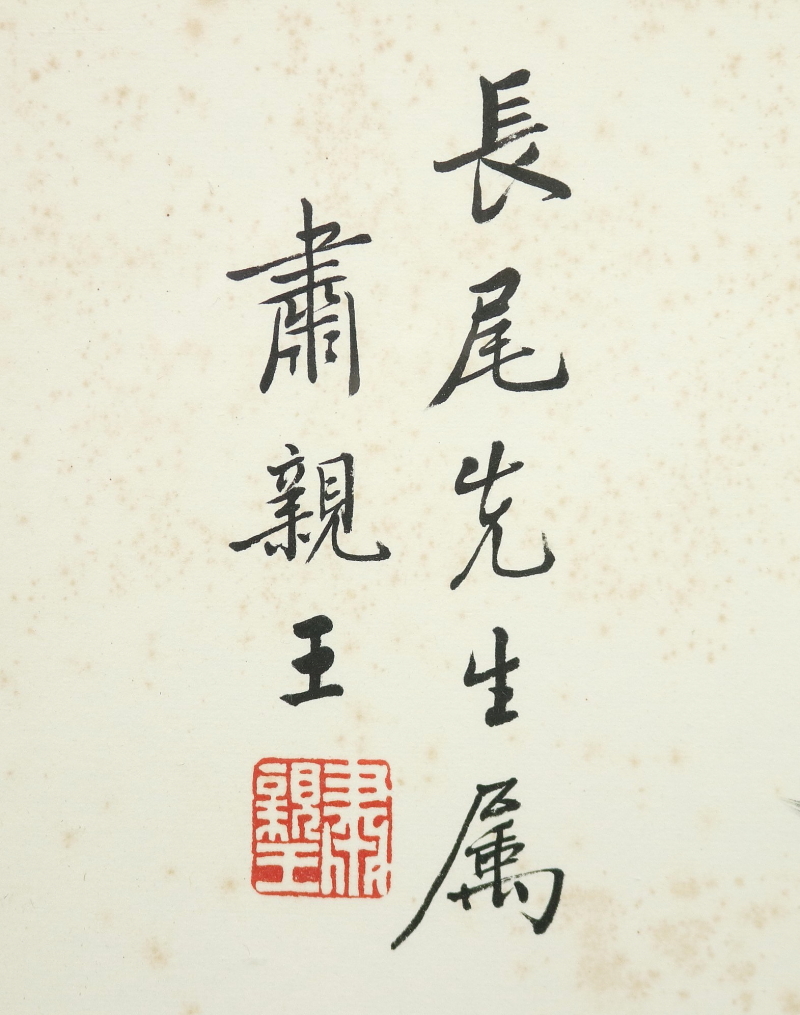 長尾先生属
肅親王
肅親王